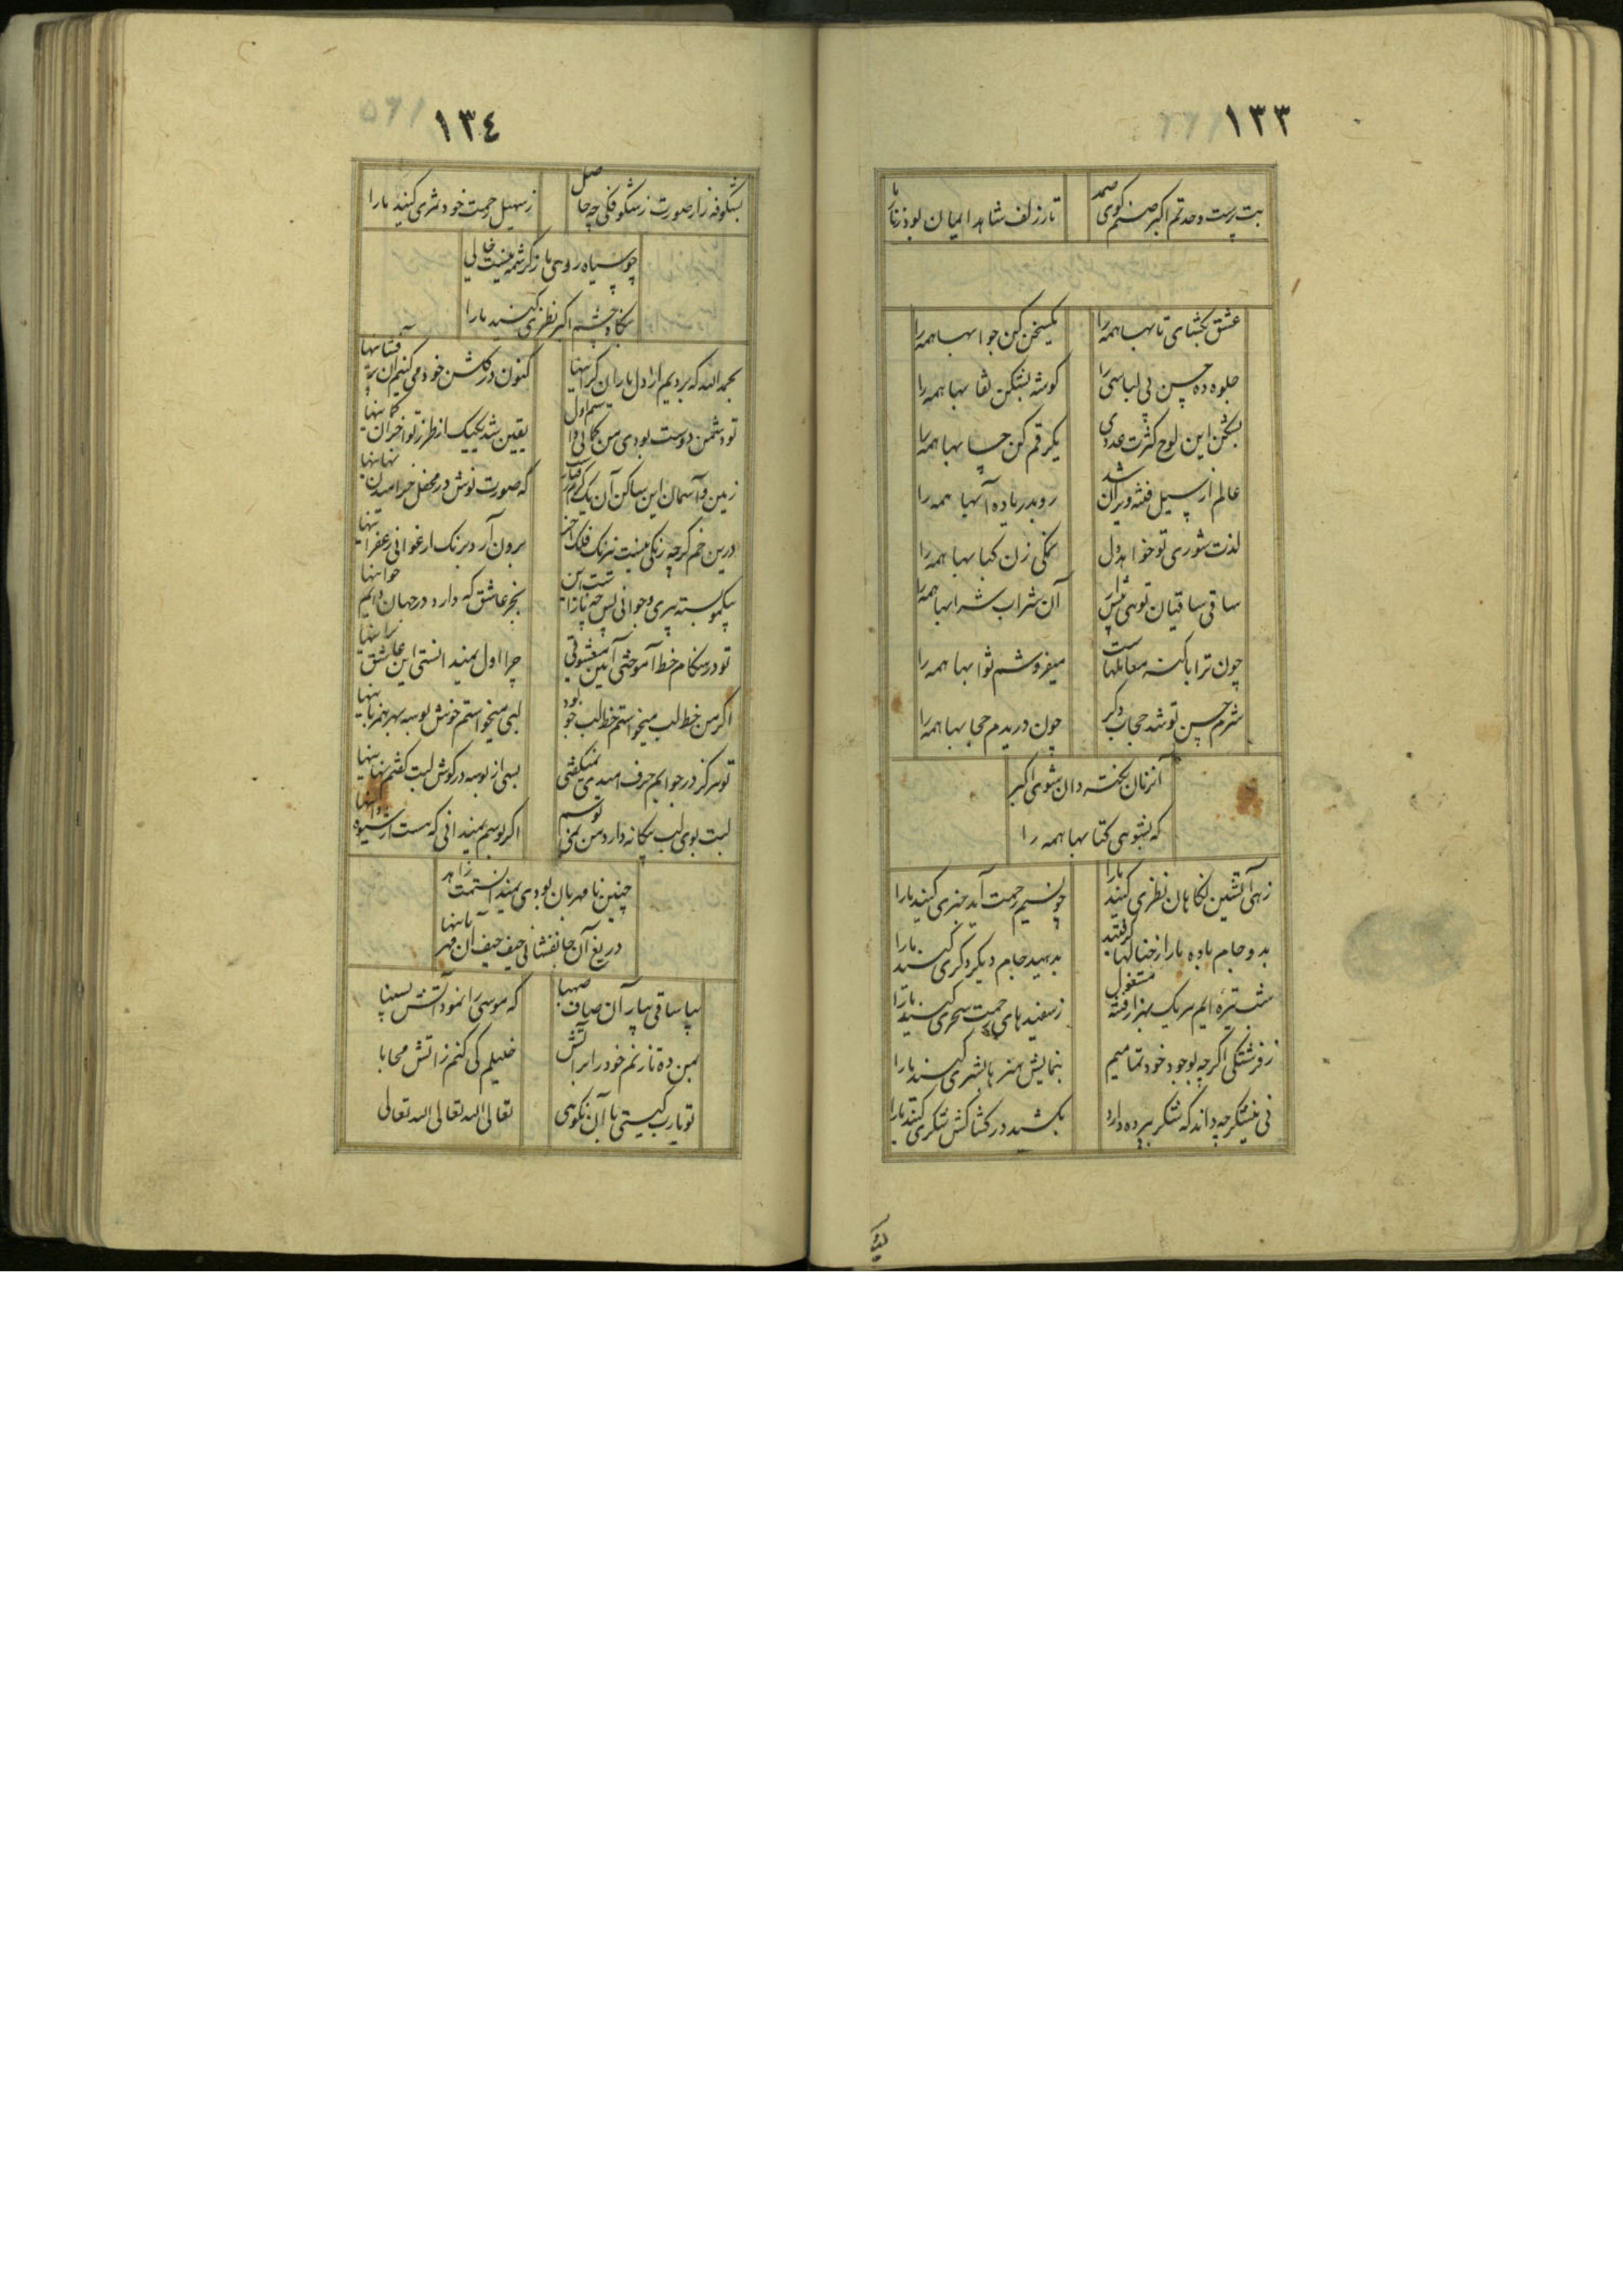 ١٣٣
بت پرست وحدتم اکبر صنم کوی صمد
تار زلف شاهد ایمان بود زنار ما
عشق بکشای تا بها همه را
یکسخن کن جوابها همه را
جلوه ده حسن بی لباسی را
گوشه بشکن نقابها همه را
این لوح کثرت عددی
یکرقم کن حسابها همه را
عالم از سیل فتنه ویران شد
رو بدریا ده آبها همه را
لذت شوری تو خواهد دل
نمکی زن کبابها همه را
ساقی ساقیان توی
آن شراب شرابها همه را
چون ترا با کنه معاملهاست
میفروشم ثوابها همه را
شرم حسن تو شد حجاب دکر
چون دریدم حجابها همه را
آنزمان نکته دان شوی اکبر
که بشوی کتابها همه را
زهی آتشین نکاهان نظری کنید ما را
چو نسیم رحمت آید خبری کنید ما را
بد و جام باده ما را از خیالها کرفتید
بدهید جام دیکر دکری کنید ما را
شب تیره ایم هر یک
رحمت سحری کنید ما را
ز فرشتکی اکرچه بوجود خود تمامیم
بنمایش هنرها بشری کنید ما را
نی نیشکر چه داند که شکر بپرده دارد
بکشید در کشاکش شکری کنید ما را
١٣٤
بشکوفه زار صورت ز شکوفکی چه حاصل
ز سهیل رحمت خود ثمری کنید ما را
چو سیاه روی ما ز کرشمه نیست خالی
نکاه چشم اکبر نظری کنید ما را
بحمدالله که بردیم از دل یاران کرانیها
کنون در کلشن خود می کنیم
تو دشمن دوست بودی من
یقین شد یکیک از طرز تو آخر آن کمانیها
زمین و آسمان این ساکن آن یک کرم رفتارست
که صورت نوش در محفل خرامیدن نهانیها
درین خم کرچه رنکی نیست نیرنک فلک آخر
برون آرد برنک ارغوانی زعفرانیها
پیری و جوانی پس چه
بجز عاشق که دارد در جهان دایم جوانیها
تو در هنکام خط آموختی آیین معشوقی
چرا اول نمیدانستی این عاشق
اکر من خط لب میخواستم خط لب جو بود
لبی میخواستم خوش بوسه بهر
تو هرکز در جوابم حرف امیدی نمیکفتی
بسی از بوسه در کوش لبت کفتم
لبت بوی لب بیکانه دارد من
اکر بوسم نمیدانی که هست از شیوه
چنین نامهربان بودی نمیدانستمت زاهد
دریغ آن جانفشانی حیف حیف آن مهربانیها
بیا ساقی بیار آن صاف صهبا
که موسی را نمود آتش بسینا
بمن ده تا زنم خود را بر آتش
خلیلم کی کنم ز آتش محابا
تو یارب کیستی با آن نکوی
تعالی الله تعالی الله تعالی